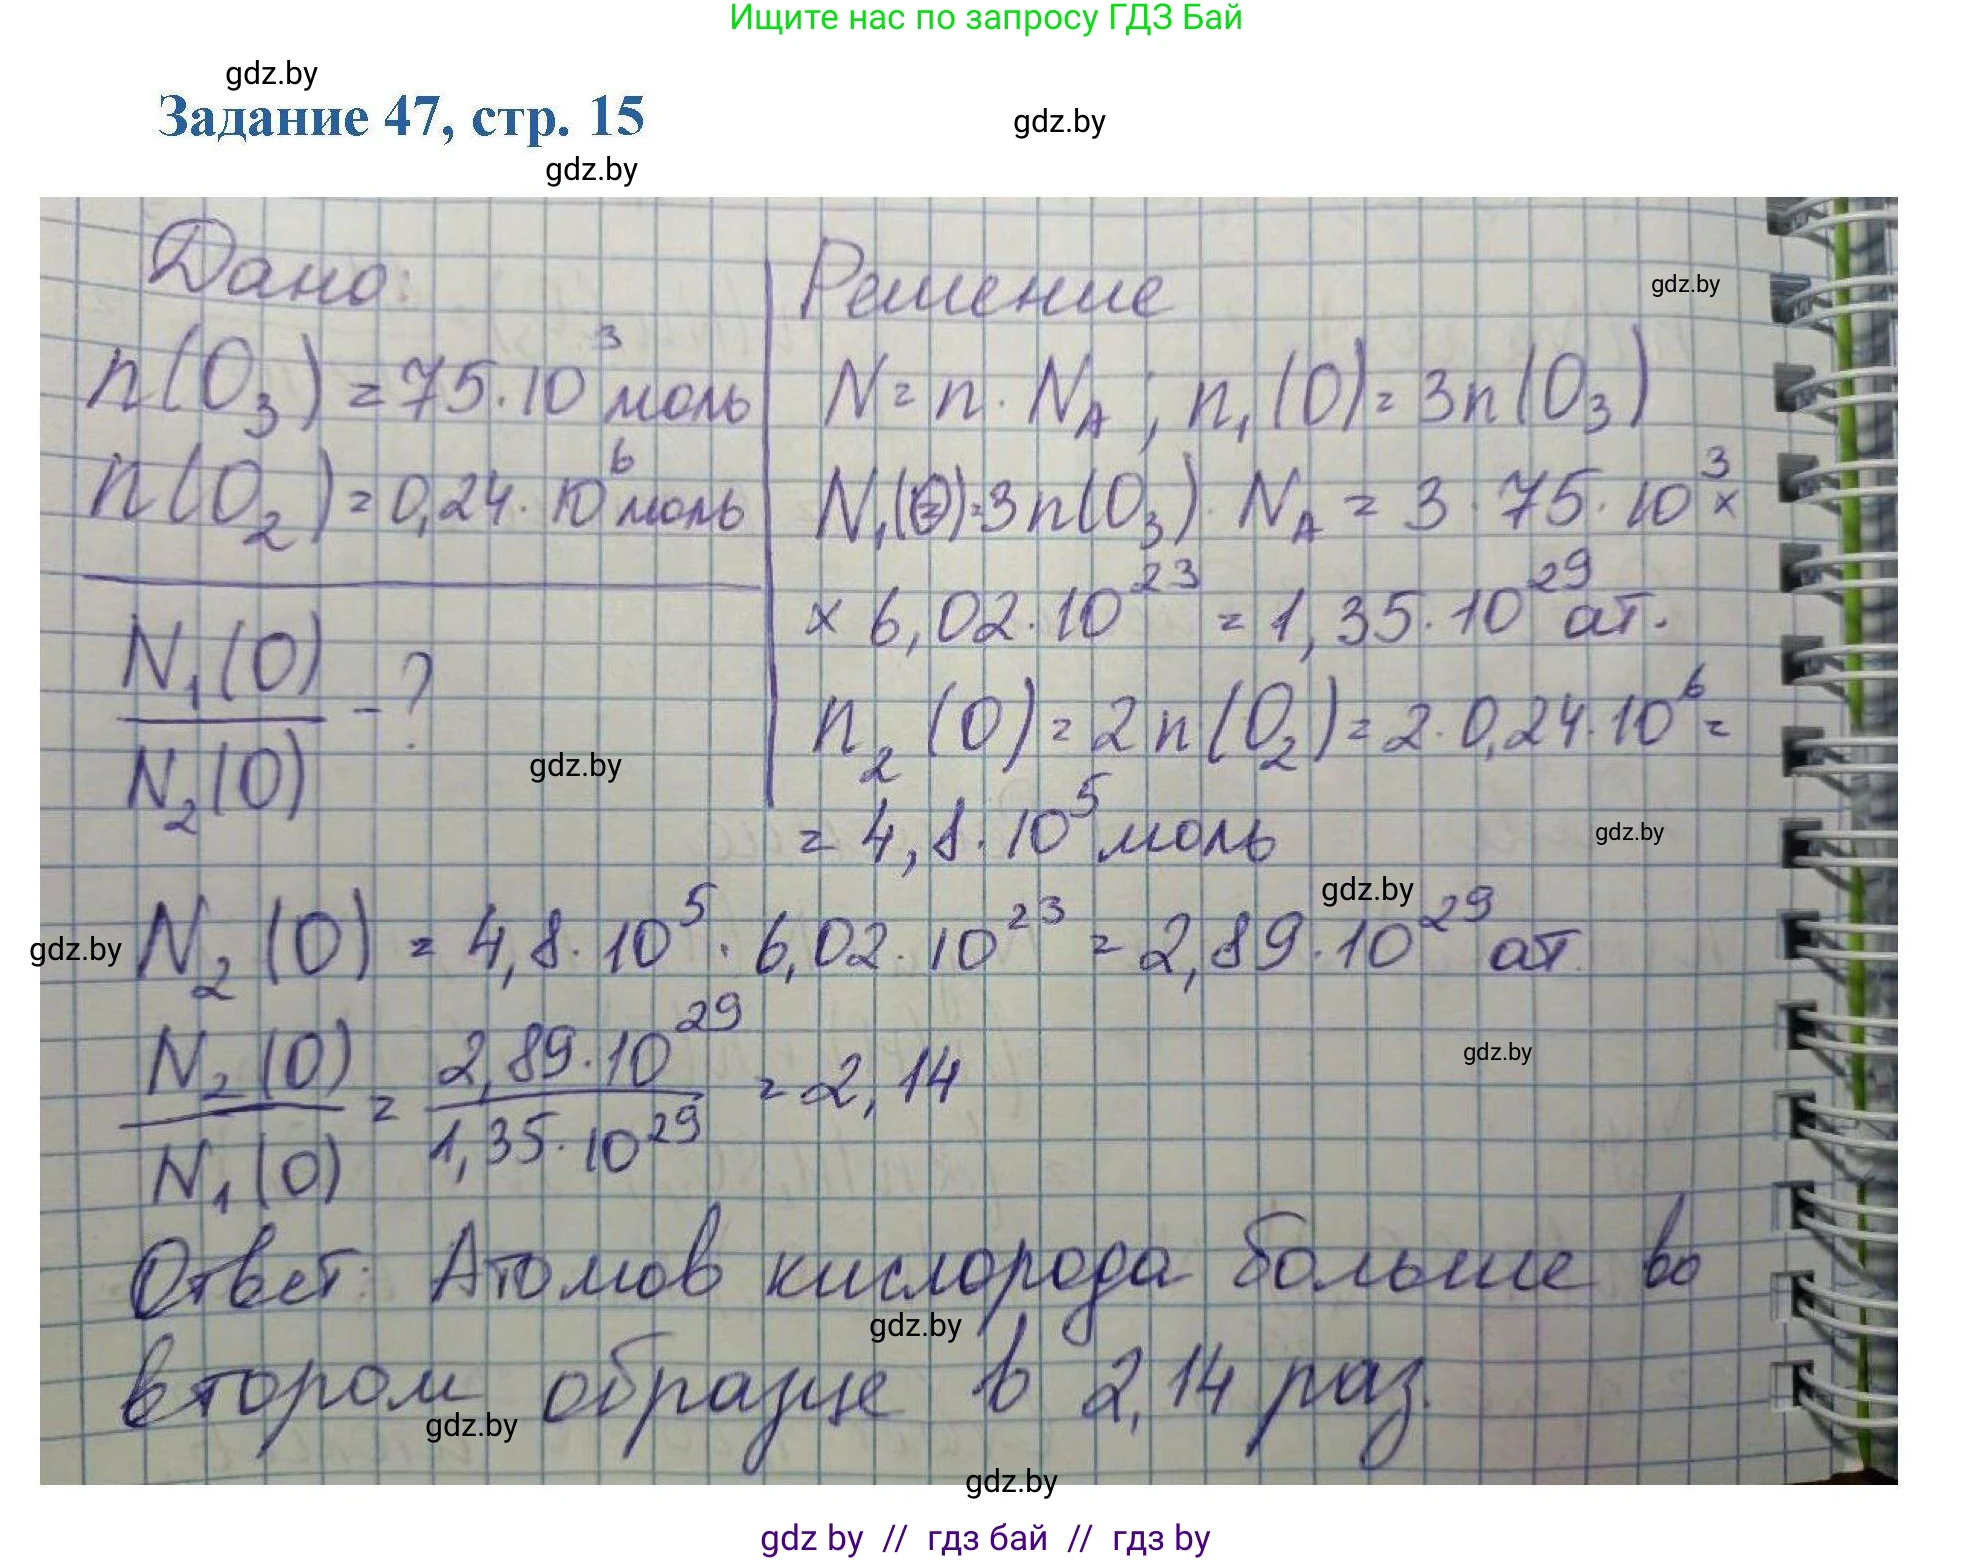 Ищите нас по запросу ГДЗ Бай
gdz.by
Задание 47, стр. 15
gdz.by
gdz.by
Дано:
n(O₃) = 75·10³ моль
n(O₂) = 0,24·10⁶ моль
N₁(O)/N₂(O) - ?
Решение
gdz.by
N = n·N_A; n₁(O) = 3n(O₃)
N₁(O) = 3n(O₃)·N_A = 3·75·10³ ×
× 6,02·10²³ = 1,35·10²⁹ ат.
n₂(O) = 2n(O₂) = 2·0,24·10⁶ =
gdz.by
= 4,8·10⁵ моль
gdz.by
gdz.by
gdz.by
N₂(O) = 4,8·10⁵·6,02·10²³ = 2,89·10²⁹ ат.
N₂(O)/N₁(O) = 2,89·10²⁹/1,35·10²⁹ = 2,14
gdz.by
Ответ: Атомов кислорода больше во
gdz.by
втором образце в 2,14 раз.
gdz.by
gdz.by
gdz by // гдз бай // гдз by